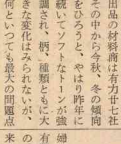 出品の材料商は有力廿七社
その中から今秋、冬の傾向
をひろうと、やはり昨年に
続いてソフトなトーンが強
調され、柄、種類ともに大
きな変化はみられないが、
何といつても最大の問題点